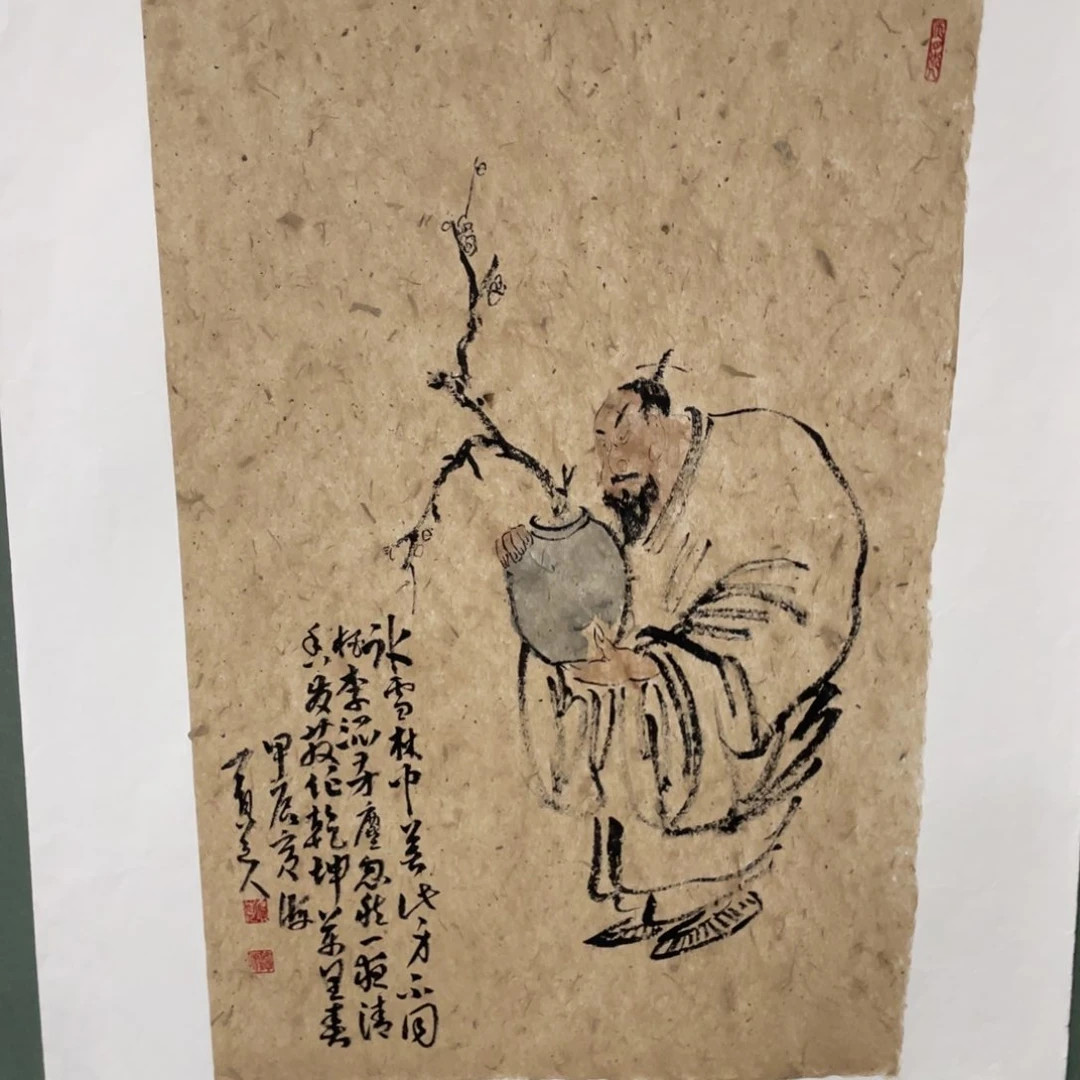 冰雪林中著此身不同
桃李混芳塵忽然一夜清
香发散作乾坤萬里春
甲辰